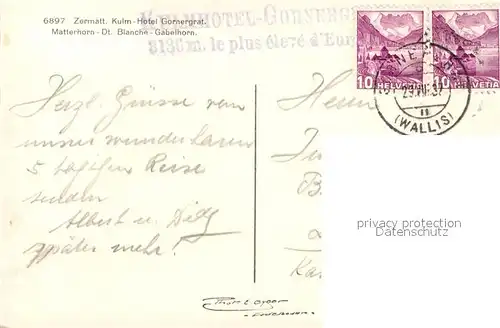 6897 Zermatt. Kulm-Hotel Gornergrat.
Matterhorn - Dt. Blanche - Gabelhorn.
KULMHOTEL-GORNERG
3136 m. le plus élevé d'Eur
10 HELVETIA 10 HELVETIA
29.VII.37
(WALLIS)
Herzl. Grüsse von
unser wunderbaren
5 tägigen Reise
senden
Albert u.
später mehr!
Herrn
privacy protection
Datenschutz